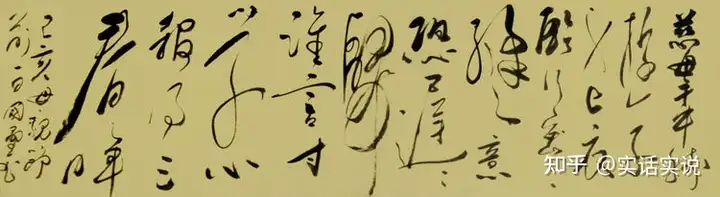 慈母手中线
游子
身上衣
临行密密
缝意
恐迟迟
歸
谁言寸
草心
报得三
春晖
己亥母亲节
前一日国
知乎 @实话实说